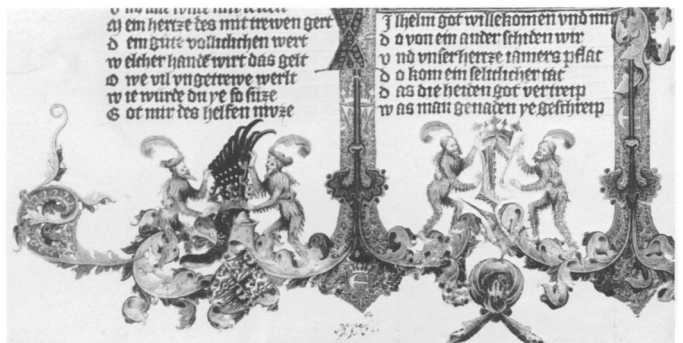 M ein hertze des mit trewen gert
D em gute vollitlichen wert
W elcher hande wirt das gelt
O we vil vngetrewe werlt
W ie wurde du ye so suze
G ot mir des helfen muze
I shelm got willekomen vnd mir
d o von ein ander schiden wir
v nd vnser hertze iamers pflac
d o kom ein selliclicher tac
d as die heiden got vertreip
w as man genaden ye geschreip